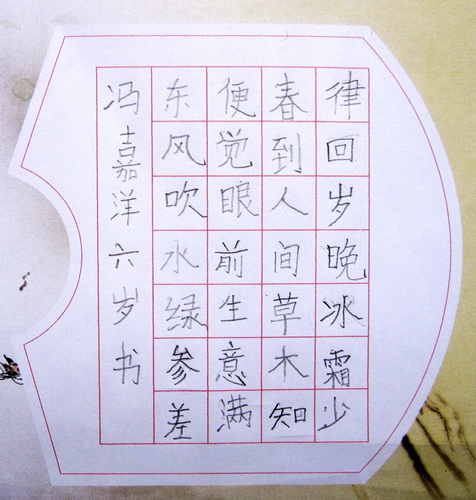 律回岁晚冰霜少
春到人间草木知
便觉眼前生意满
东风吹水绿参差
冯嘉洋六岁书